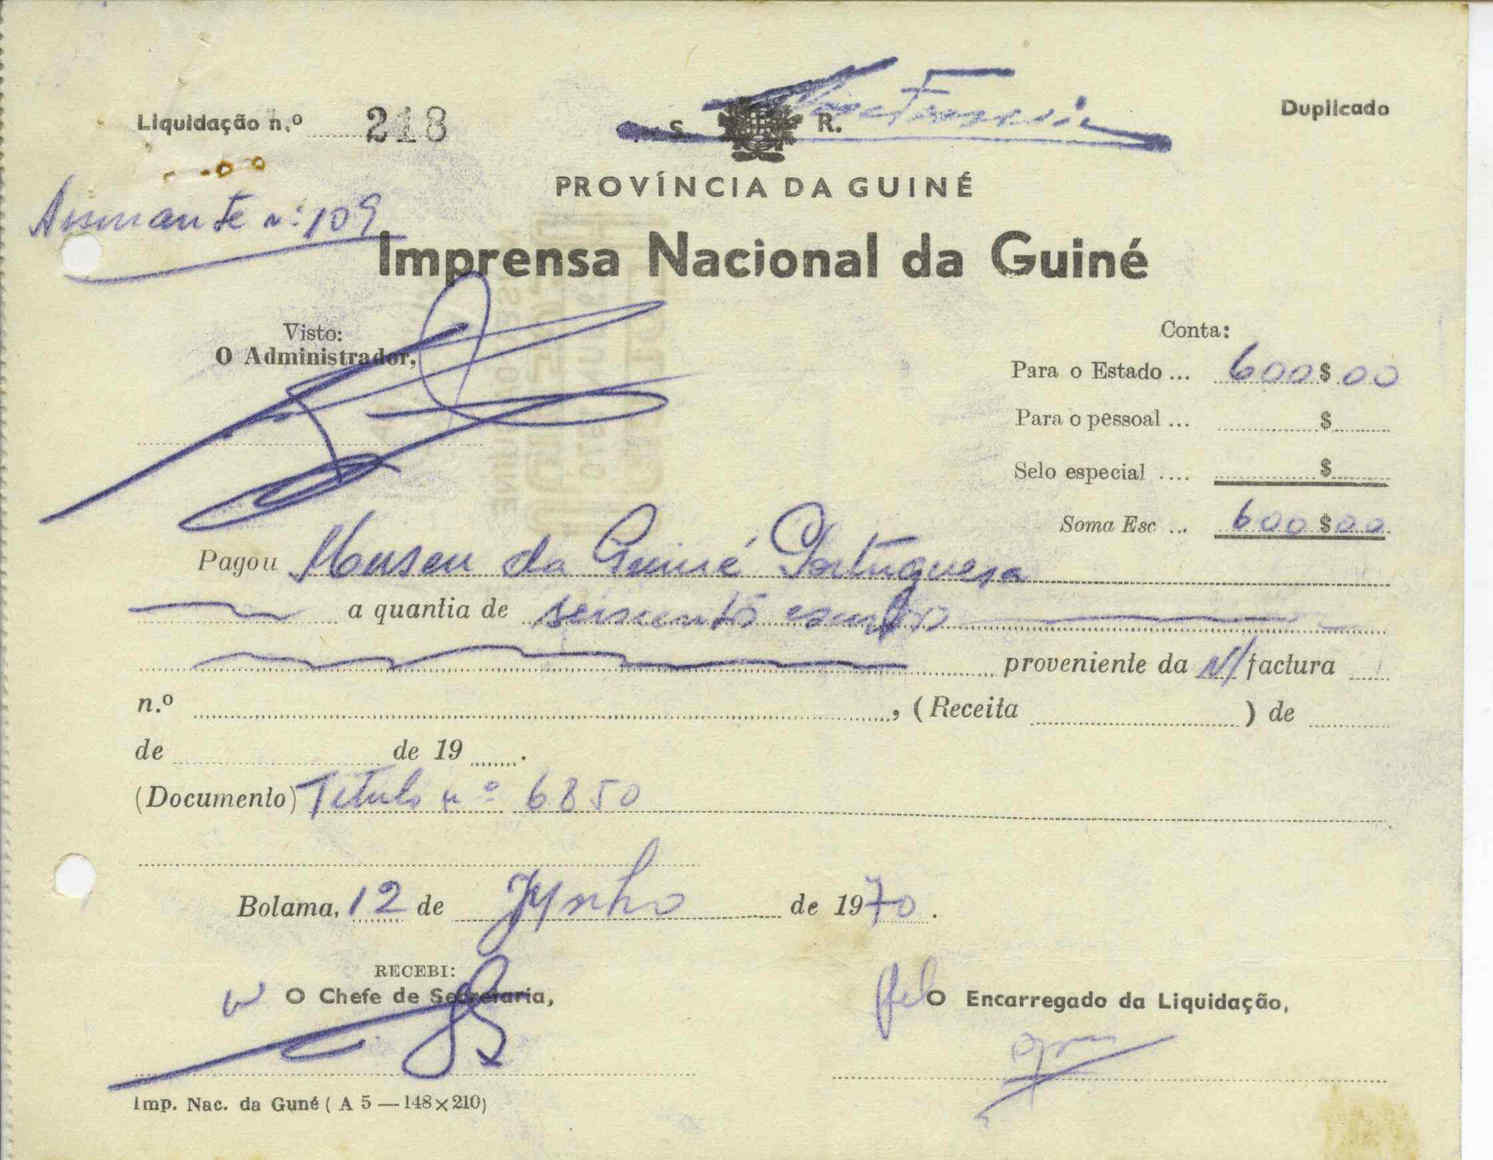 Liquidação n.º 218
S. R.
Duplicado
PROVÍNCIA DA GUINÉ
Assinante nº 109
Imprensa Nacional da Guiné
Visto:
O Administrador,
Conta:
Para o Estado ... 600$00
Para o pessoal ... $
Selo especial .... $
Soma Esc ... 600$00
Pagou Museu da Guiné Portuguesa
a quantia de seiscentos escudos
proveniente da N/factura
n.º , (Receita ) de
de de 19 .
(Documento) Titulo nº 6850
Bolama, 12 de Junho de 1970.
RECEBI:
O Chefe de Secretaria,
Pel O Encarregado da Liquidação,
Imp. Nac. da Guné ( A 5 — 148×210)